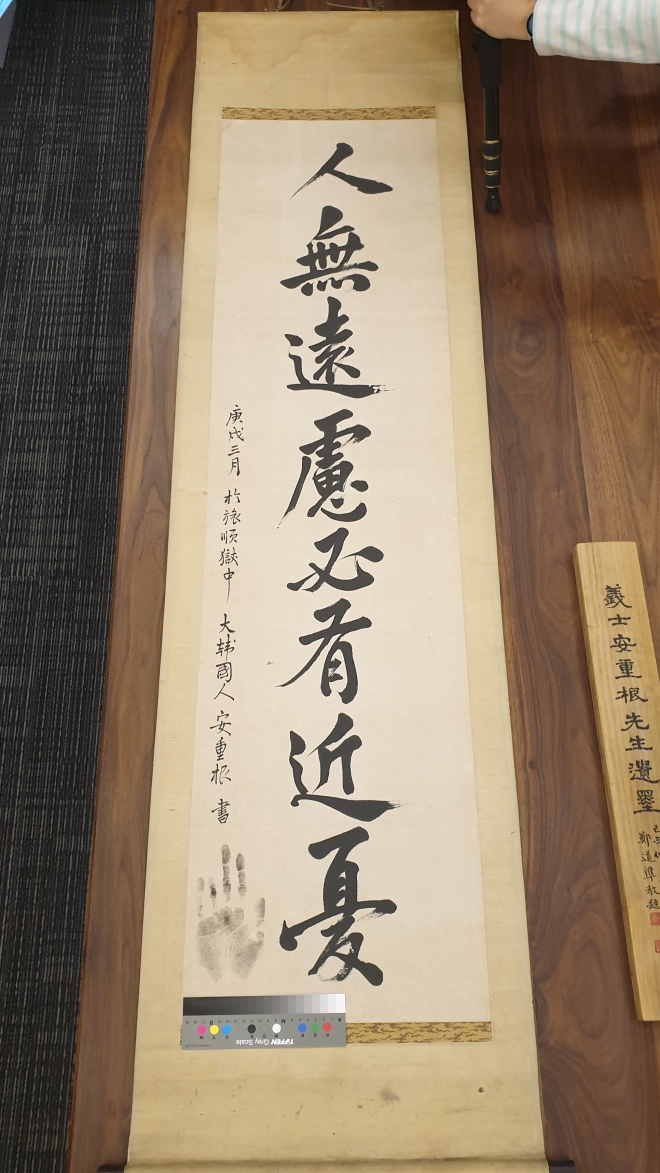 人無遠慮必有近憂
庚戌三月 於旅順獄中 大韓國人 安重根 書
義士安重根先生遺墨
TIFFEN Gray Scale
A M B
R G B W C Y M